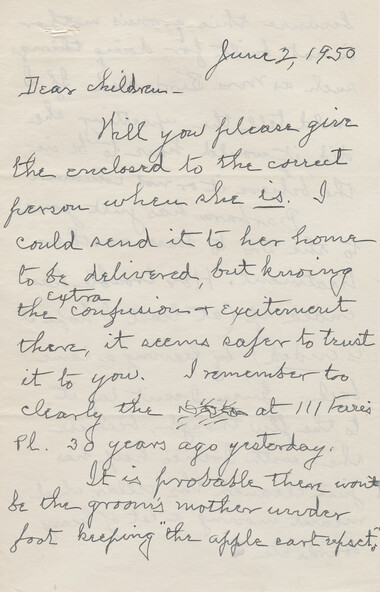 June 2, 1950
Dear Children -
Will you please give
the enclosed to the correct
person when she is. I
could send it to her home
to be delivered, but knoing
the extra confusion + excitement
there, it seems safer to trust
it to you. I remember too
clearly the at 111 Ferris
Pl. 30 years ago yesterday.
It is probable there won't
be the groom's mother under
foot keeping "the apple cart upset".